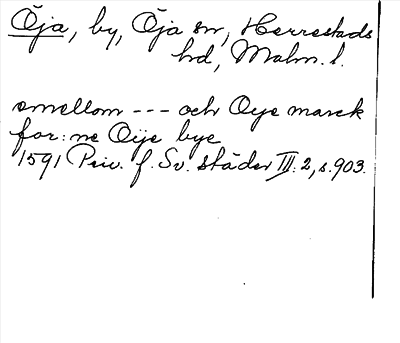 Öja, by, Öja sn, Herrestads
hd, Malm. l.
emellom --- och Oye marck
for: ne Oÿe bye
1591 Priv. f. Sv. städer III: 2, s. 903.